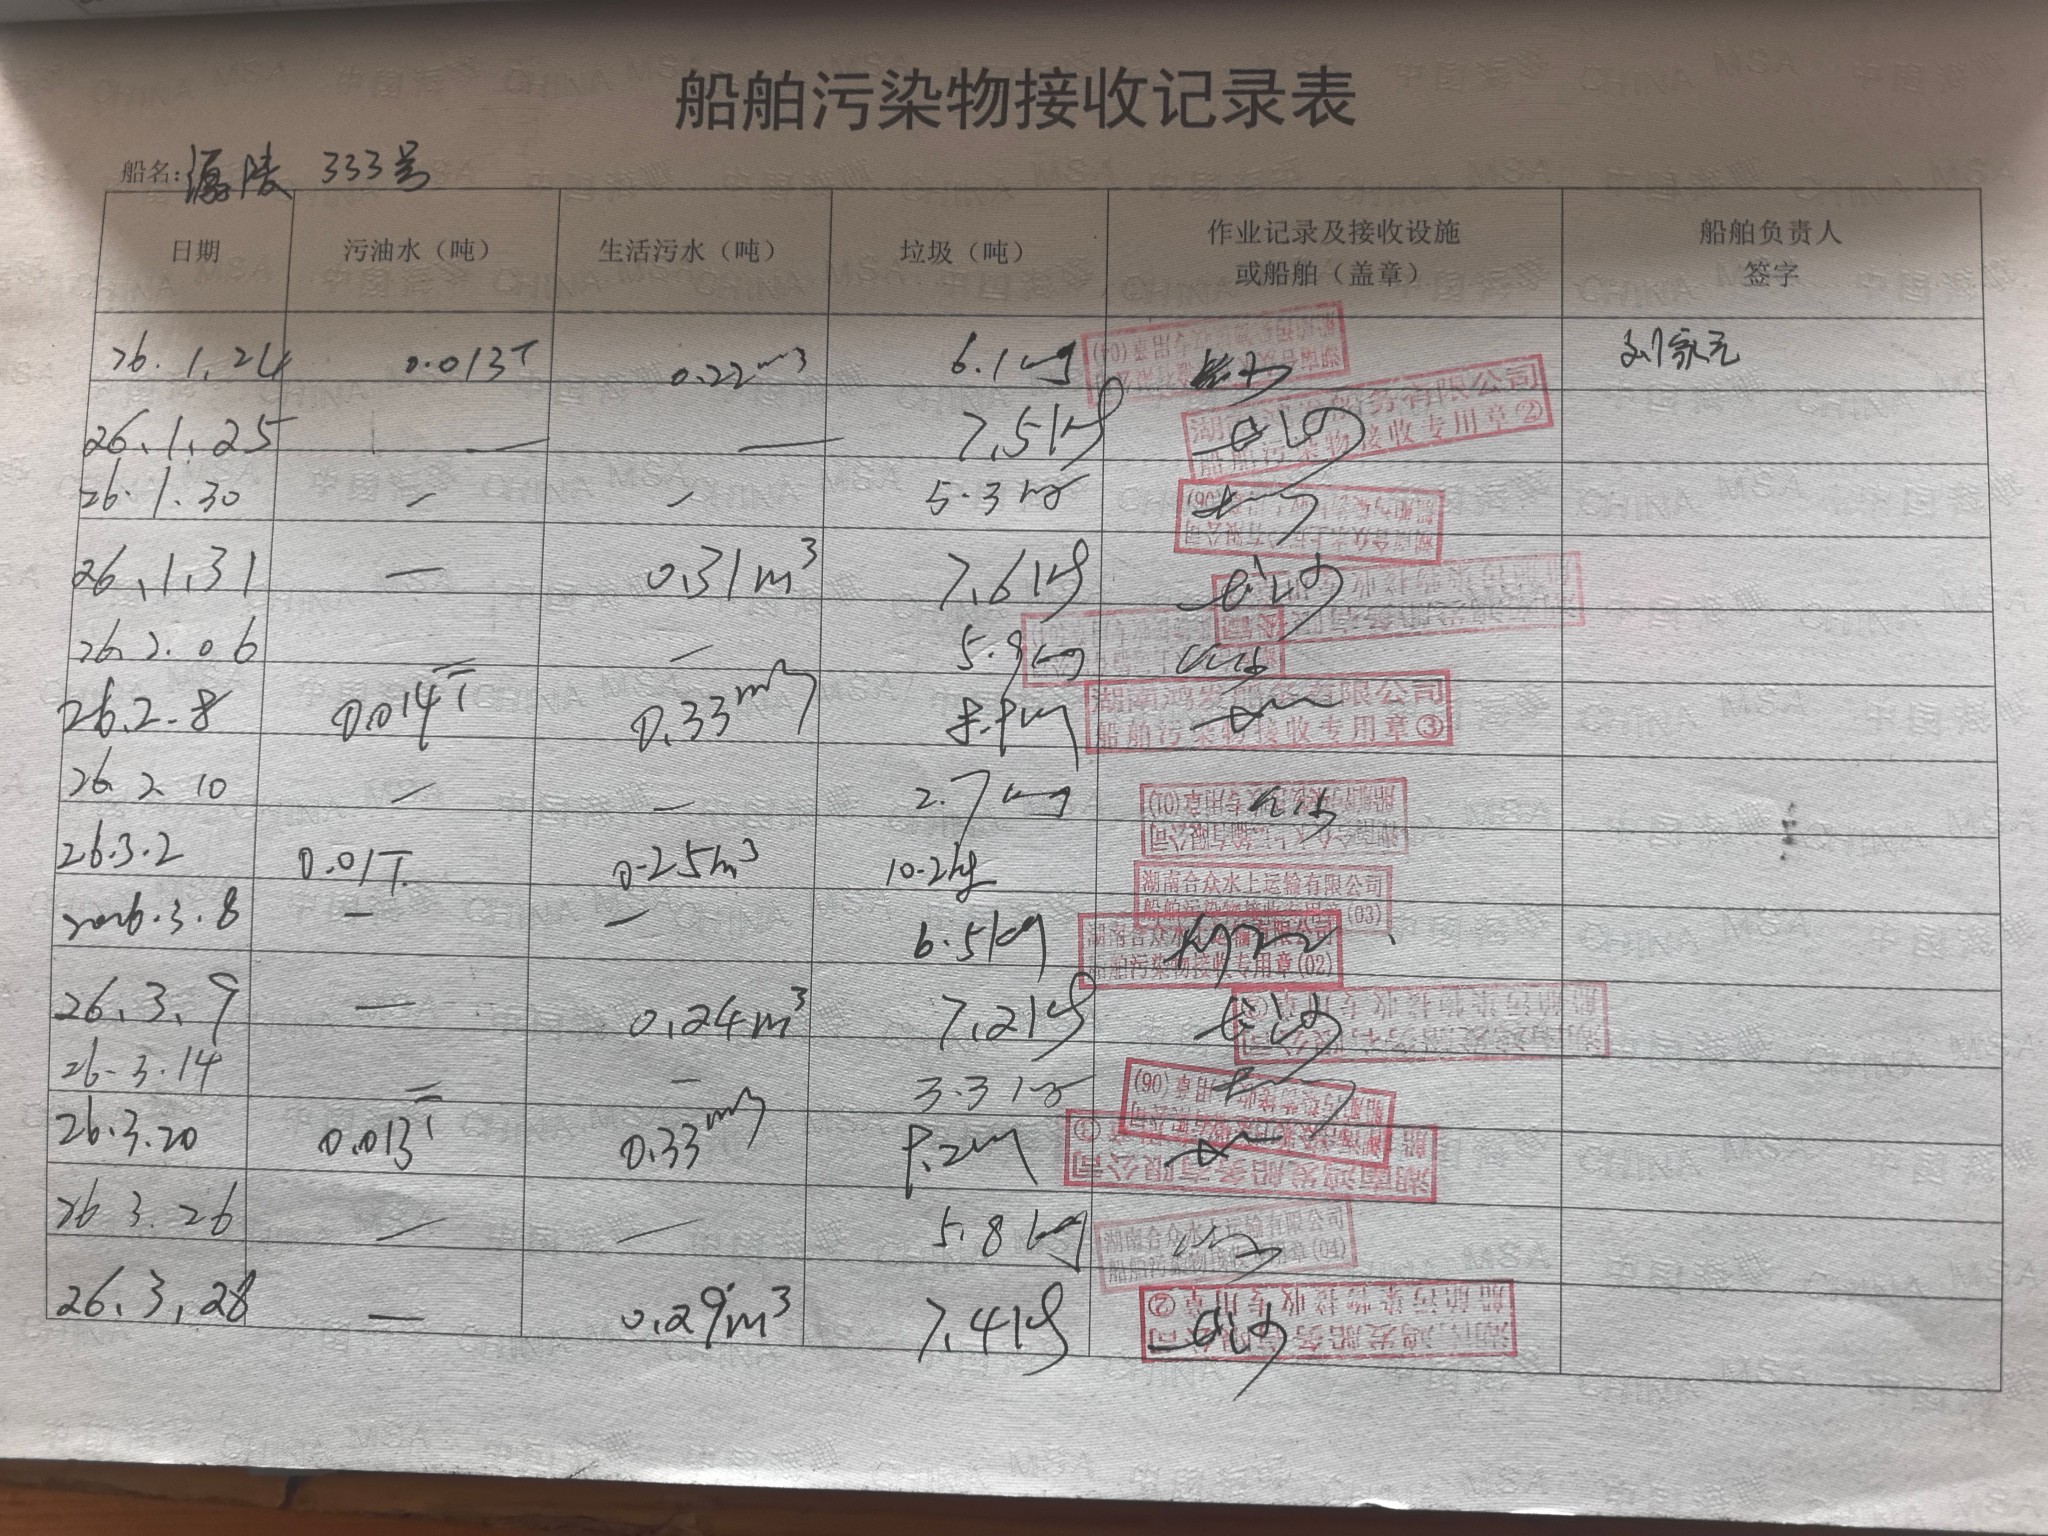 船舶污染物接收记录表
船名: 陵 333号
日期 污油水（吨） 生活污水（吨） 垃圾（吨） 作业记录及接收设施或船舶（盖章） 船舶负责人签字
26.1.24 0.013T 0.22m³ 6.1kg
26.1.25 — — 7.5kg 湖南 船务有限公司 船舶污染物接收专用章②
26.1.30 — — 5.3kg (06)
26.1.31 — 0.31m³ 7.6kg
26.2.06 — — 5.9kg
26.2.8 0.014T 0.33m³ kg 湖南鸿发船务有限公司 船舶污染物接收专用章③
26.2.10 — — 2.7kg 船舶污染物接收专用章(01) 湖南合众水上运输有限公司
26.3.2 0.01T. 0.25m³ 10.2kg 湖南合众水上运输有限公司 船舶污染物接收专用章(03)
2026.3.8 — — 6.5kg 湖南合众水上运输有限公司 船舶污染物接收专用章(02)
26.3.9 — 0.24m³ 7.2kg 船舶污染物接收专用章
26.3.14 — — 3.3kg (06)
26.3.20 0.013T 0.33m³ kg 湖南鸿发船务有限公司
26.3.26 — — 5.8kg 湖南合众水上运输有限公司 船舶污染物接收专用章(04)
26.3.28 — 0.29m³ 7.4kg 湖南鸿发船务有限公司 船舶污染物接收专用章②